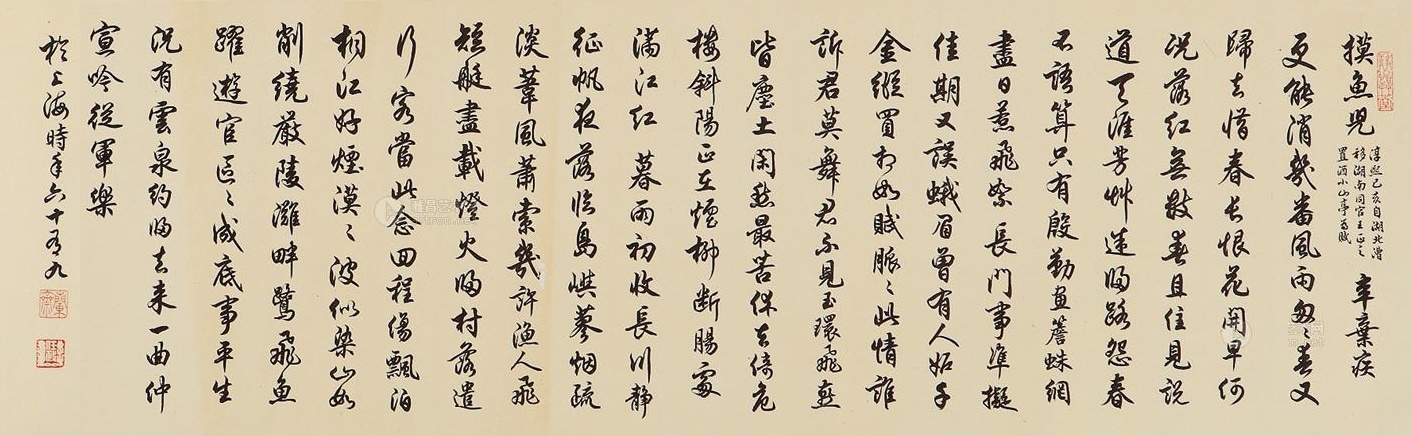 摸魚兒
淳熙己亥自湖北漕
移湖南同官王正之
置酒小山亭為賦
辛棄疾
更能消幾番風雨匆〻春又
歸去惜春長恨花開早何
況落紅無數春且住見說
道天涯芳艸迷歸路怨春
不語算只有殷勤畫簷蛛網
盡日惹飛絮長門事準擬
佳期又誤蛾眉曾有人妬千
金縱買相如賦脈〻此情誰
訴君莫舞君不見玉環飛燕
皆塵土閑愁最苦休去倚危
樓斜陽正在煙柳斷腸處
滿江紅 暮雨初收長川靜
征帆夜落臨島嶼蓼烟疏
淡葦風蕭索幾許漁人飛
短艇盡載燈火歸村落遣
行客當此念回程傷飄泊
桐江好煙漠〻波似染山如
削繞嚴陵灘畔鷺飛魚
躍遊宦區〻成底事平生
況有雲泉約歸去來一曲仲
宣吟從軍樂
於上海時年六十有九